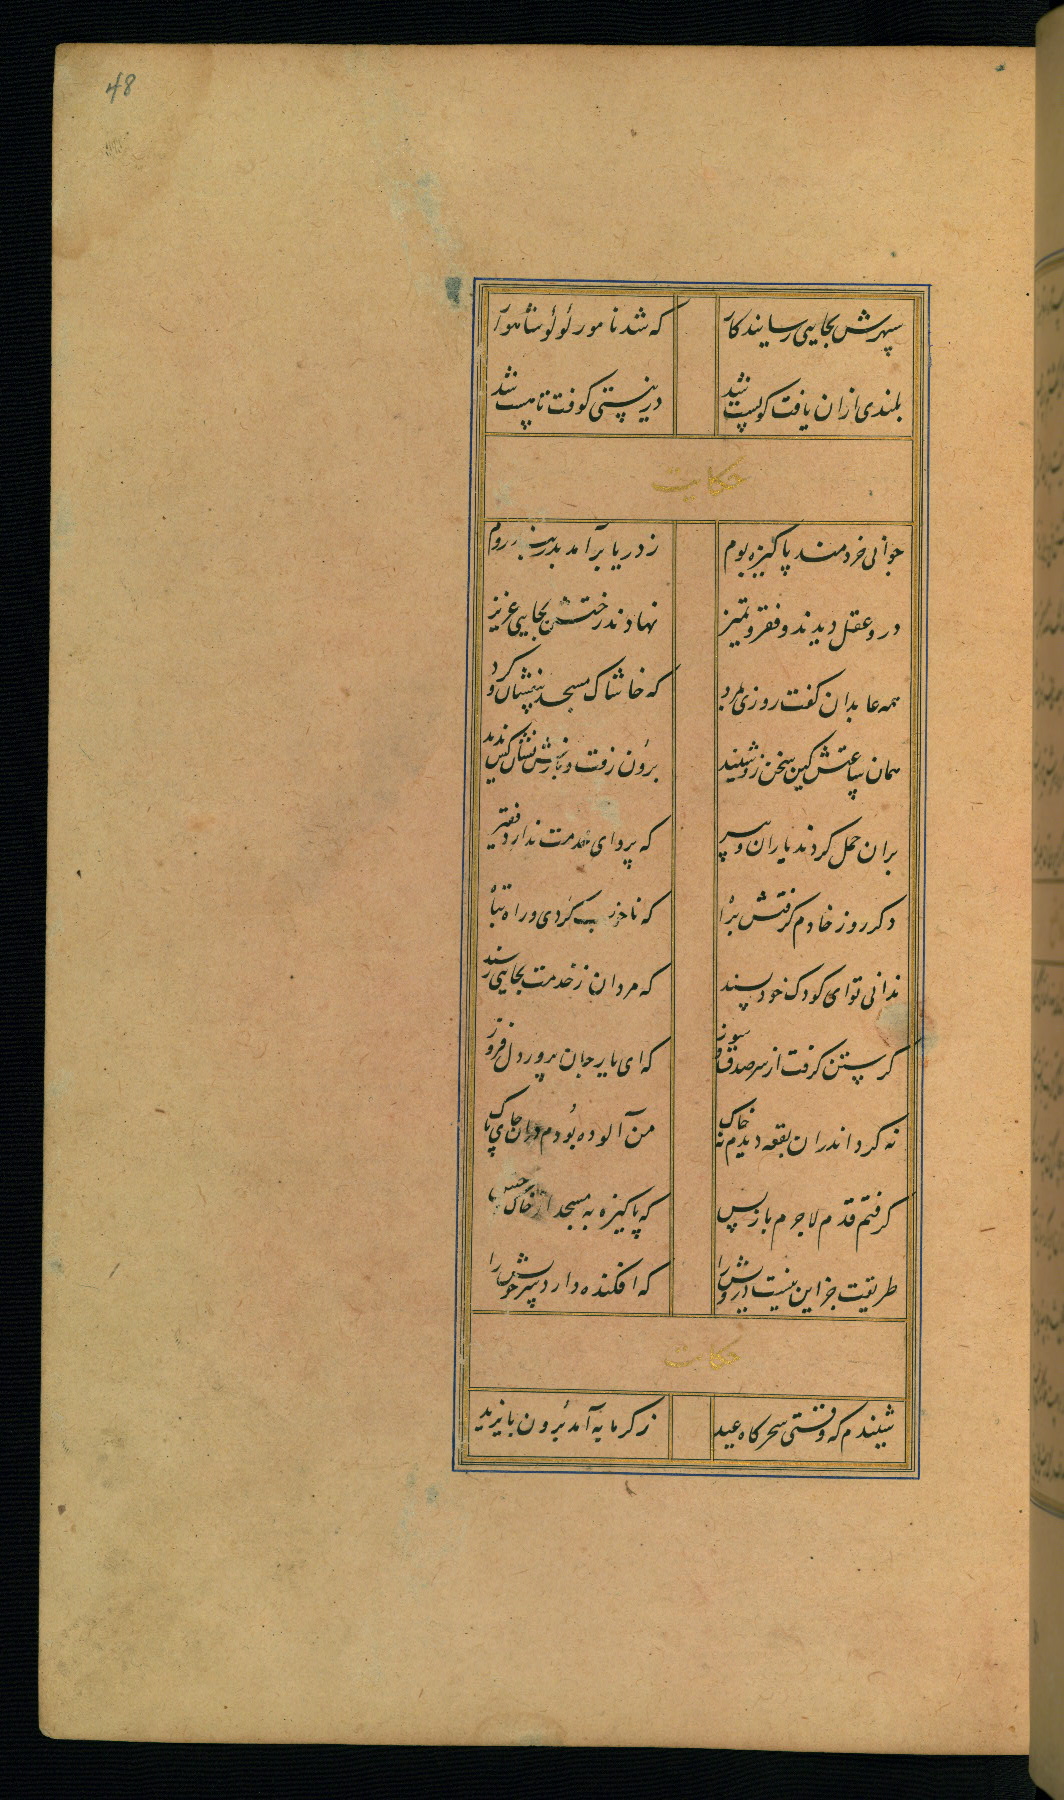 48
سپهرش بجایی رسانید کار
که شد نامور لؤلؤ شاهوار
بلندی ازان یافت کو پست شد
در نیستی کوفت تا هست شد
حکایت
جوانی خردمند پاکیزه بوم
ز دریا برآمد بدربند روم
درو عقل دیدند و فقر و تمیز
نهادند رختش بجایی عزیز
مه عابدان گفت روزی بمرد
که خاشاک مسجد بیفشان و کرد
همان ساعتش کین سخن زو شنید
برون رفت و بازش نشان کس ندید
بران حمل کردند یاران و پیر
که پروای خدمت ندارد فقیر
دکر روز خادم کرفتش براه
که ناخوب کردی و راه تباه
ندانی تو ای کودک خود پسند
که مردان ز خدمت بجایی رسند
کرستن کرفت از سر صدق و سوز
که ای یار جان پرور دل فروز
نه کرد اندران بقعه دیدم نه خاک
من آلوده بودم دران جای پاک
کرفتم قدم لاجرم باز پس
که پاکیزه به مسجد از خاک
طریقت جز این نیست درویش را
که افکنده دارد سر خویش را
حکایت
شنیدم که وقتی سحرکاه عید
ز کرمابه آمد برون بایزید